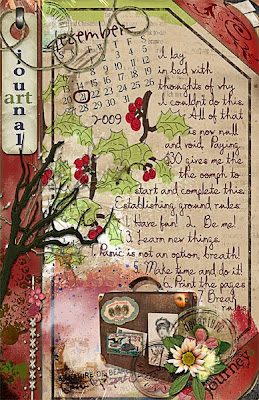 December
journal
art
S M T W T F S
2009
I lay
in bed with
thoughts of why
I couldnt do this.
All of that
is now null
and void. Paying
$30 gives me the
the oomph to
start and complete this.
Establishing ground rules
1. Have fun! 2. Be me!
3. Learn new things.
4. Panic is not an option, breath!
5. Make time and do it!
6. Print the pages
7. Break
rules
journey